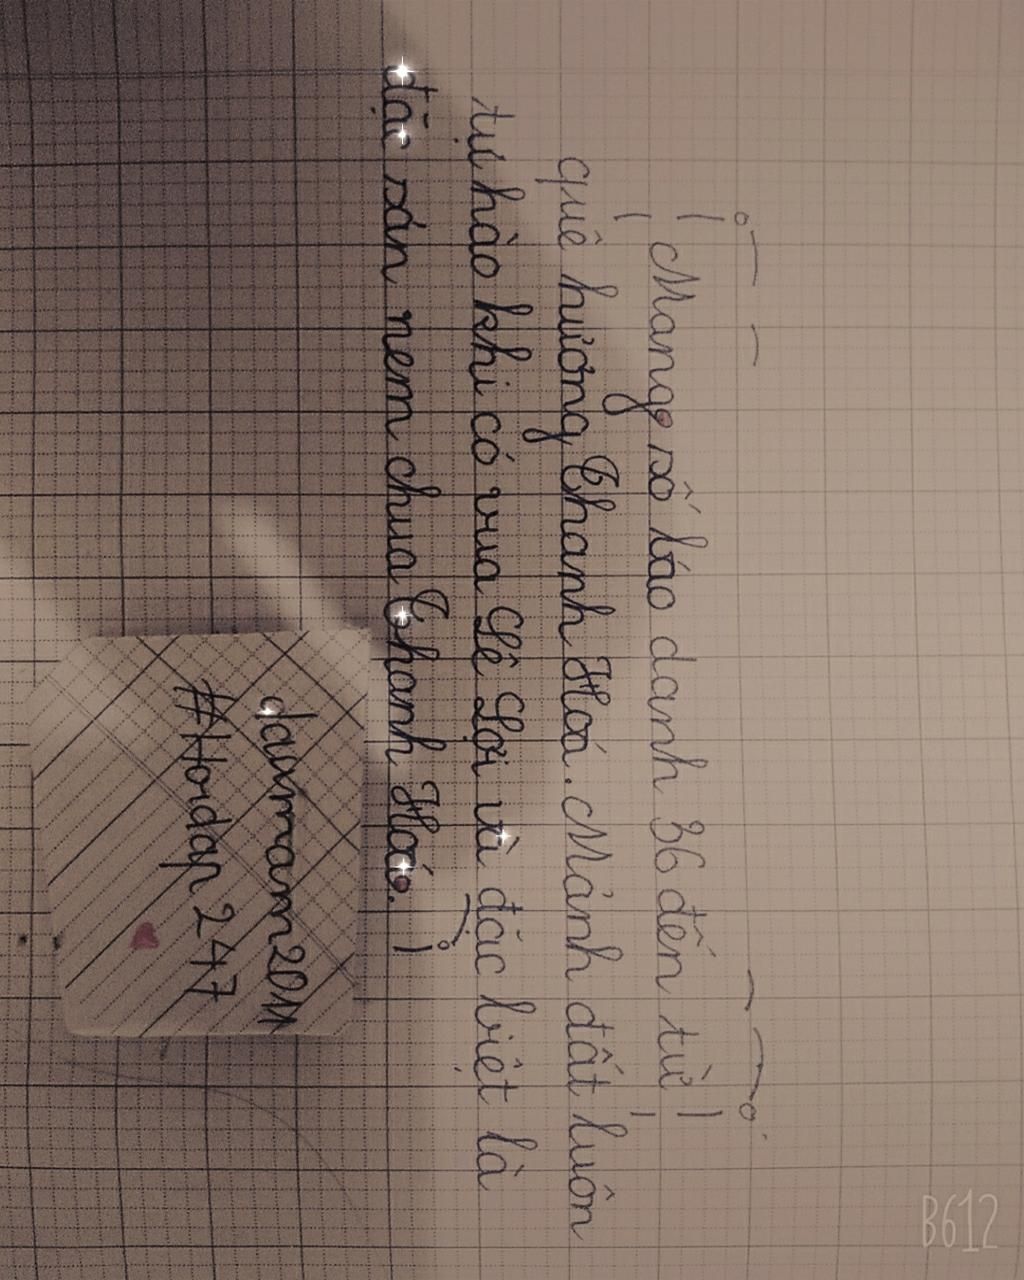 Mang số báo danh 36 đến từ
quê hương Thanh Hoá. Mảnh đất luôn
tự hào khi có vua Lê Lợi và đặc biệt là
đặc sản nem chua Thanh Hoá.
#Hoidap 247
B612